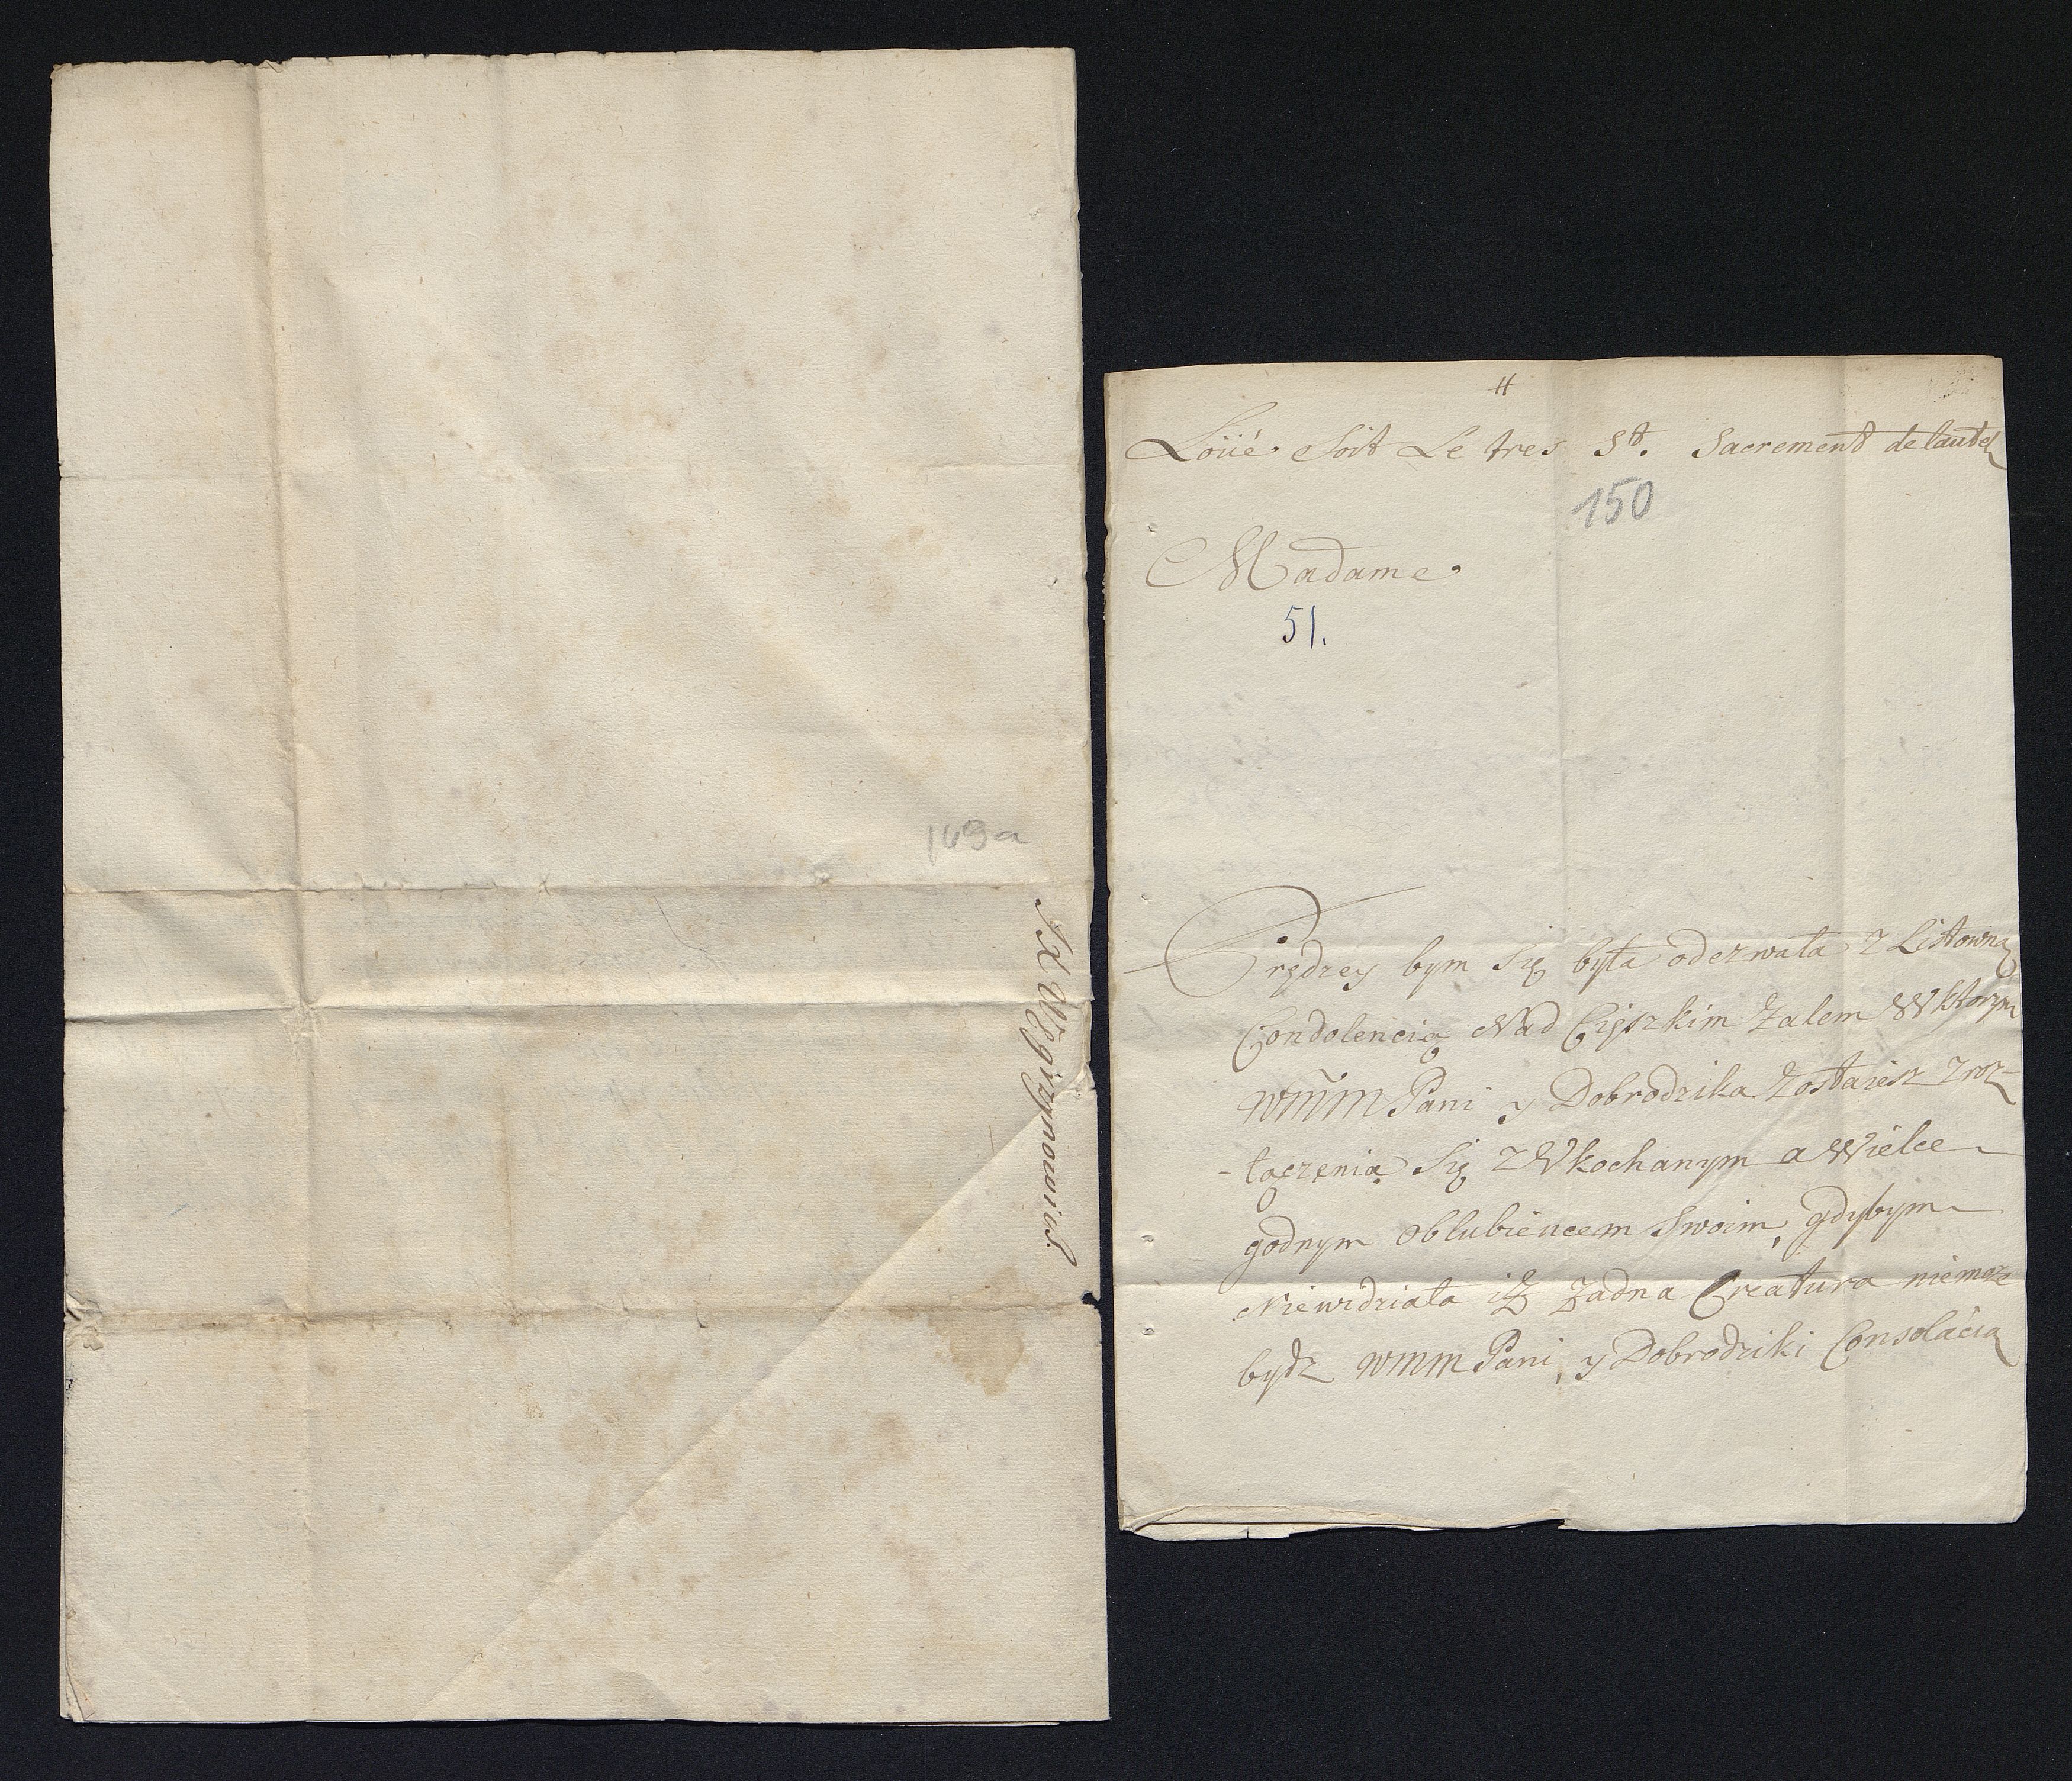 149a
JX Węgrzynowicz
#
Loüé Soit Le tres St. Sacrement de lautel
150
Madame
51.
Prędzey bym Się była odezwała z Listowną
Condolencią Nad Cięszkim Żalem W ktorym
WMM Pani y Dobrodzika Zostaiesz z roz-
-łączenia Się z Wkochanym a Wielce
godnym oblubieńcem Swoim, gdybym
Niewidziała iż żadna Creatura niemoże
bydz WMM Pani, y Dobrodziki Consolacią